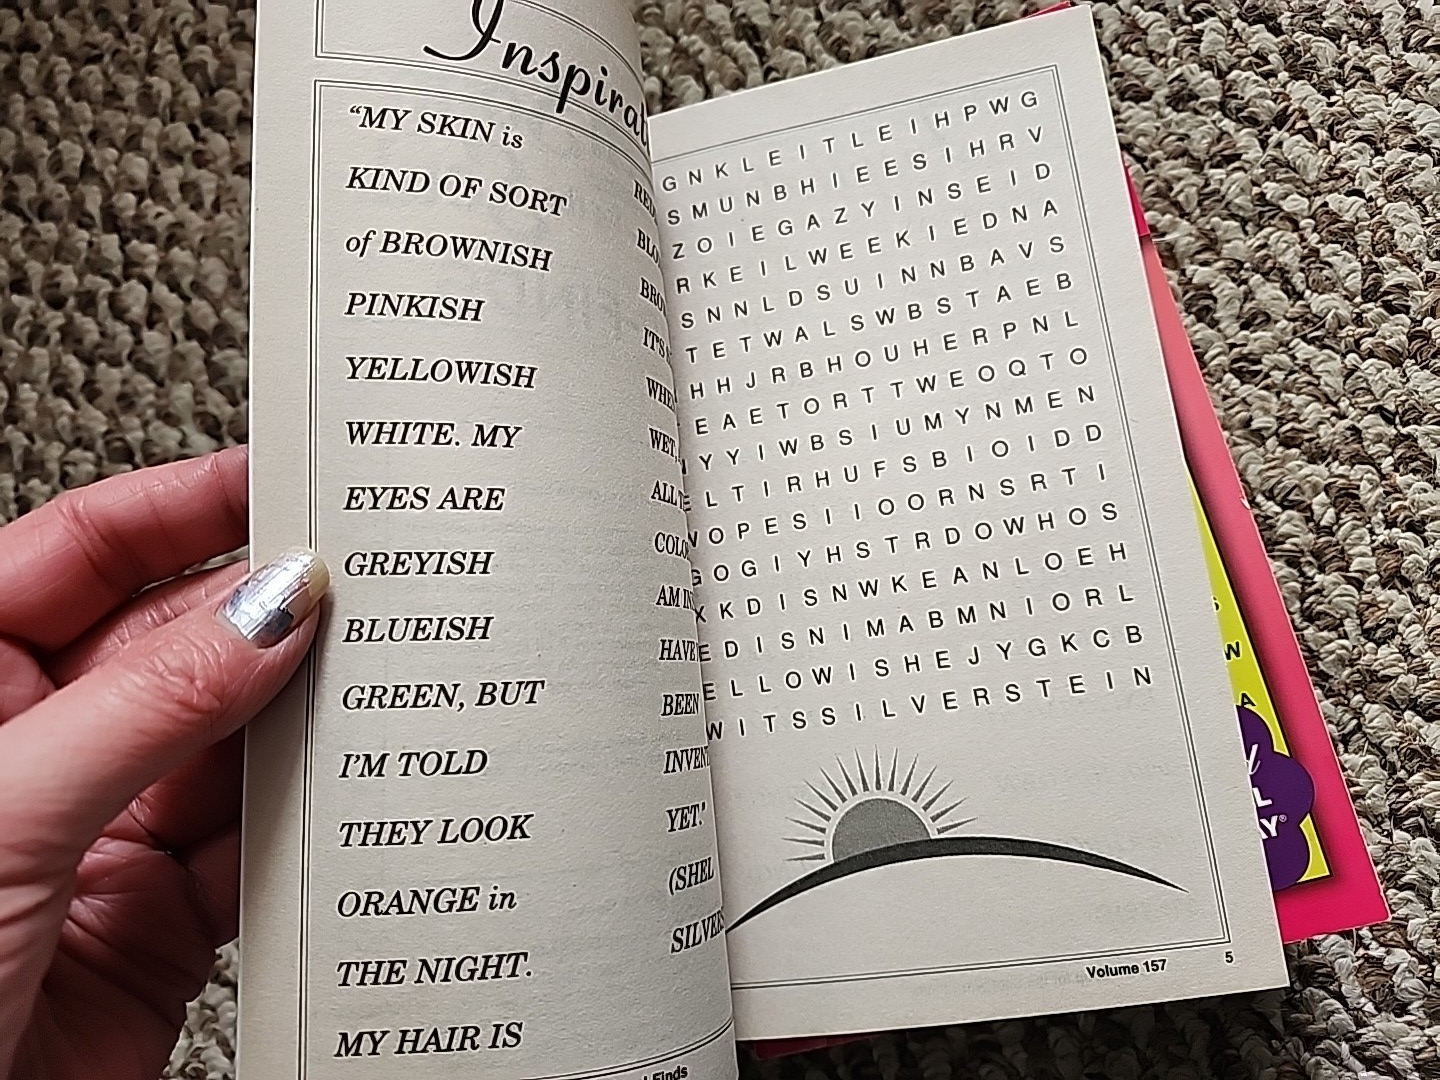 Inspirat
"MY SKIN is
KIND OF SORT
of BROWNISH
PINKISH
YELLOWISH
WHITE. MY
EYES ARE
GREYISH
BLUEISH
GREEN, BUT
I'M TOLD
THEY LOOK
ORANGE in
THE NIGHT.
MY HAIR IS
BLO
BRO
IT'S
WHE
WET,
ALL
COLO
AM IN
HAVE
BEEN
INVENT
YET."
(SHEL
SILVERS
Finds
G N K L E I T L E I H P W G
S M U N B H I E E S I H R V
Z O I E G A Z Y I N S E I D
R K E I L W E E K I E D N A
S N N L D S U I N N B A V S
T E T W A L S W B S T A E B
H H J R B H O U H E R P N L
E A E T O R T T W E O Q T O
Y Y I W B S I U M Y N M E N
L T I R H U F S B I O I D D
O P E S I I O O R N S R T I
G O G I Y H S T R D O W H O S
X K D I S N W K E A N L O E H
E D I S N I M A B M N I O R L
E L L O W I S H E J Y G K C B
W I T S S I L V E R S T E I N
Volume 157
5
S
W
A
L
AY®